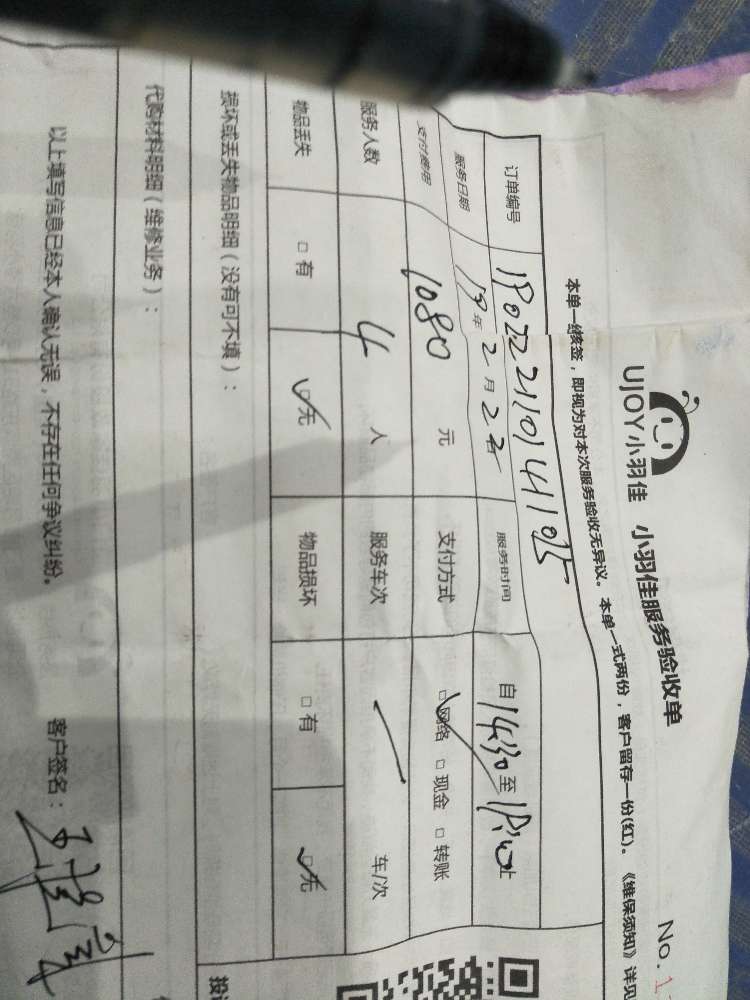 UJOY小羽佳 小羽佳服务验收单
No.1
本单一经核签，即视为对本次服务验收无异议。本单一式两份，客户留存一份(红)。《维保须知》详见
订单编号
服务日期 19年2月22 服务时间 自14:30至
支付费用 1080元 支付方式 □网络 □现金 □转账
服务人数 4人 服务车次 一 车/次
物品丢失 □有 □无 物品损坏 □有 □无
损坏或丢失物品明细（没有可不填）：
代购材料明细（维修业务）：
以上填写信息已经本人确认无误，不存在任何争议纠纷。 客户签名：
投